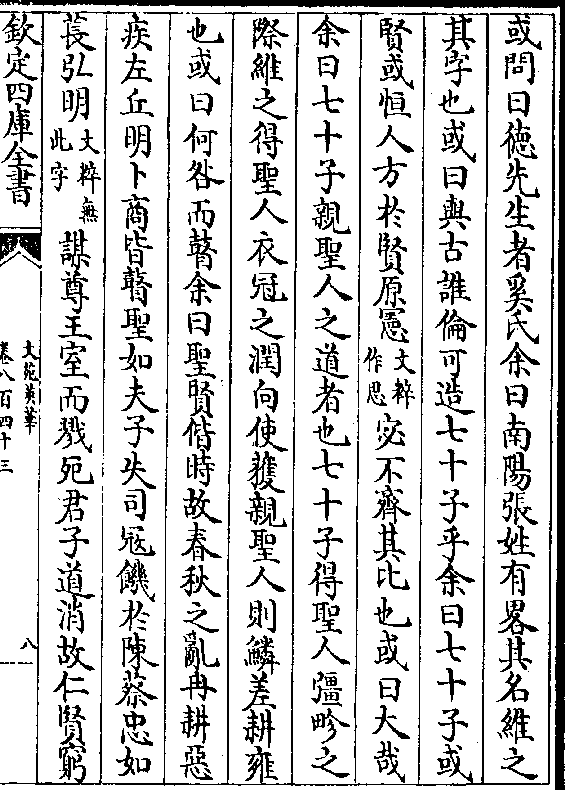 或問曰徳先生者奚氏余曰南陽張姓有畧其名維之
其字也或曰與古誰倫可造七十子乎余曰七十子或
賢或恒人方於賢原憲文粹作思宓不齊其比也或曰大哉
余曰七十子親聖人之道者也七十子得聖人彊畛之
際維之得聖人衣冠之潤向使獲親聖人則鱗差耕雍
也或曰何咎而瞽余曰聖賢偕時故春秋之亂冉耕惡
疾左丘明卜商皆瞽聖如夫子失司冦饑於陳蔡忠如
萇弘明文粹無此字謀尊王室而戮死君子道消故仁賢窮
欽定四庫全書
文苑英華
卷八百四十三
八